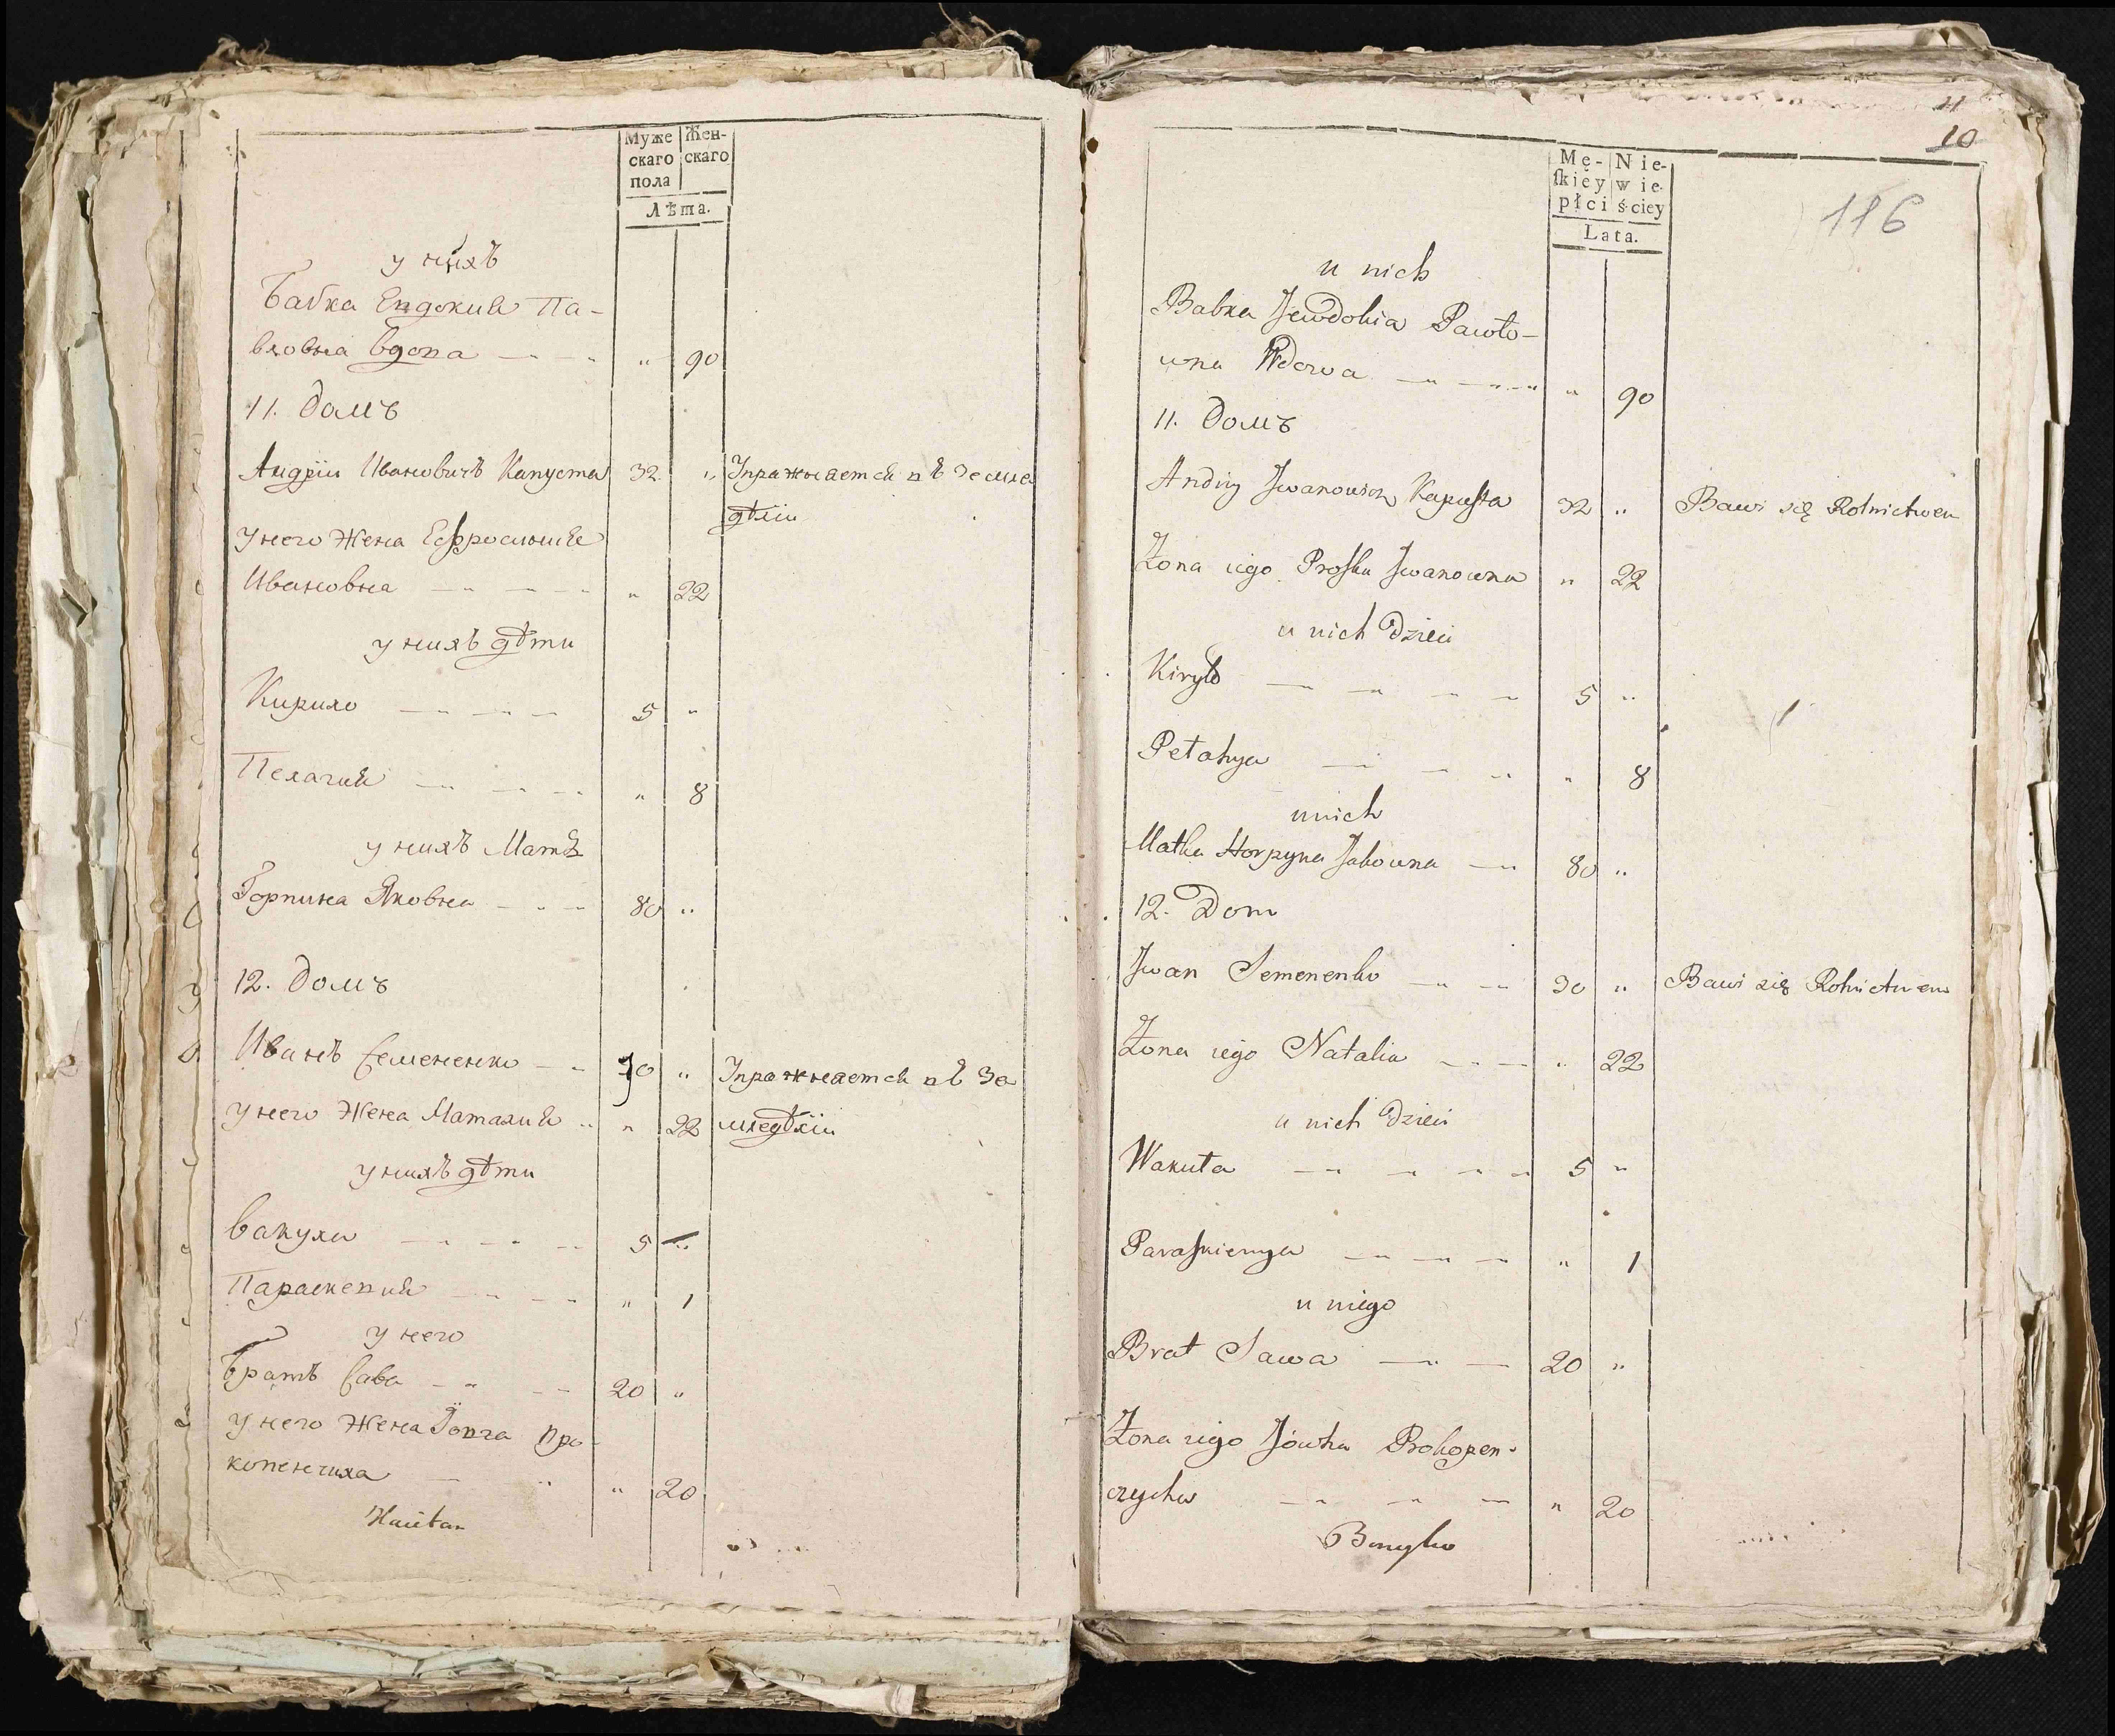 Муже
скаго
пола
Жен-
скаго
Лѣта.
у нихъ
Бабка Евдокия Па-
вловна вдова — „ — „ „ 90
11. Домъ
Андрiй Ивановичъ Капуста 32 „ Упражняется въ Земле
дѣлiи
у него Жена Ефросиния
Ивановна — „ — „ „ 22
у нихъ дѣти
Кирило — „ — „ — 5 „
Пелагия — „ — „ „ 8
у нихъ Мать
Горпина Яковна — „ — 80 „
12. Домъ
Иванъ Семененко — „ 30 „ Упражняется въ Зе
у него Жена Наталия „ „ 22 мледѣлiи
у нихъ дѣти
Вакула — „ — „ 5 „
Параскевия — „ — „ „ 1
у него
Братъ Сава — „ — 20 „
у него Жена Ювга Про-
копенчиха — „ „ 20
11
10
116
Mę-
skiey
płci
Nie-
wie-
ściey
Lata.
u nich
Babka Jewdokia Pawło-
wna Wdowa — „ — „ „ 90
11. Домъ
Andriy Jwanowicz Kapusta 32 „ Bawi się Rolnictwem
Żona iego Proska Jwanowna „ 22
u nich Dzieci
Kiryło — „ — „ 5 „
Pełahya — „ — „ „ 8
u nich
Matka Horpyna Jakowna — „ 80 „
12. Dom
Jwan Semenenko — „ — „ 30 „ Bawi się Rolnictwem
Żona iego Natalia — „ — „ 22
u nich Dzieci
Wakuła — „ — „ 5 „
Paraskiewya — „ — „ — „ 1
u niego
Brat Sawa — „ — 20 „
Żona iego Jówha Prokopen-
czycha — „ — „ — „ 20